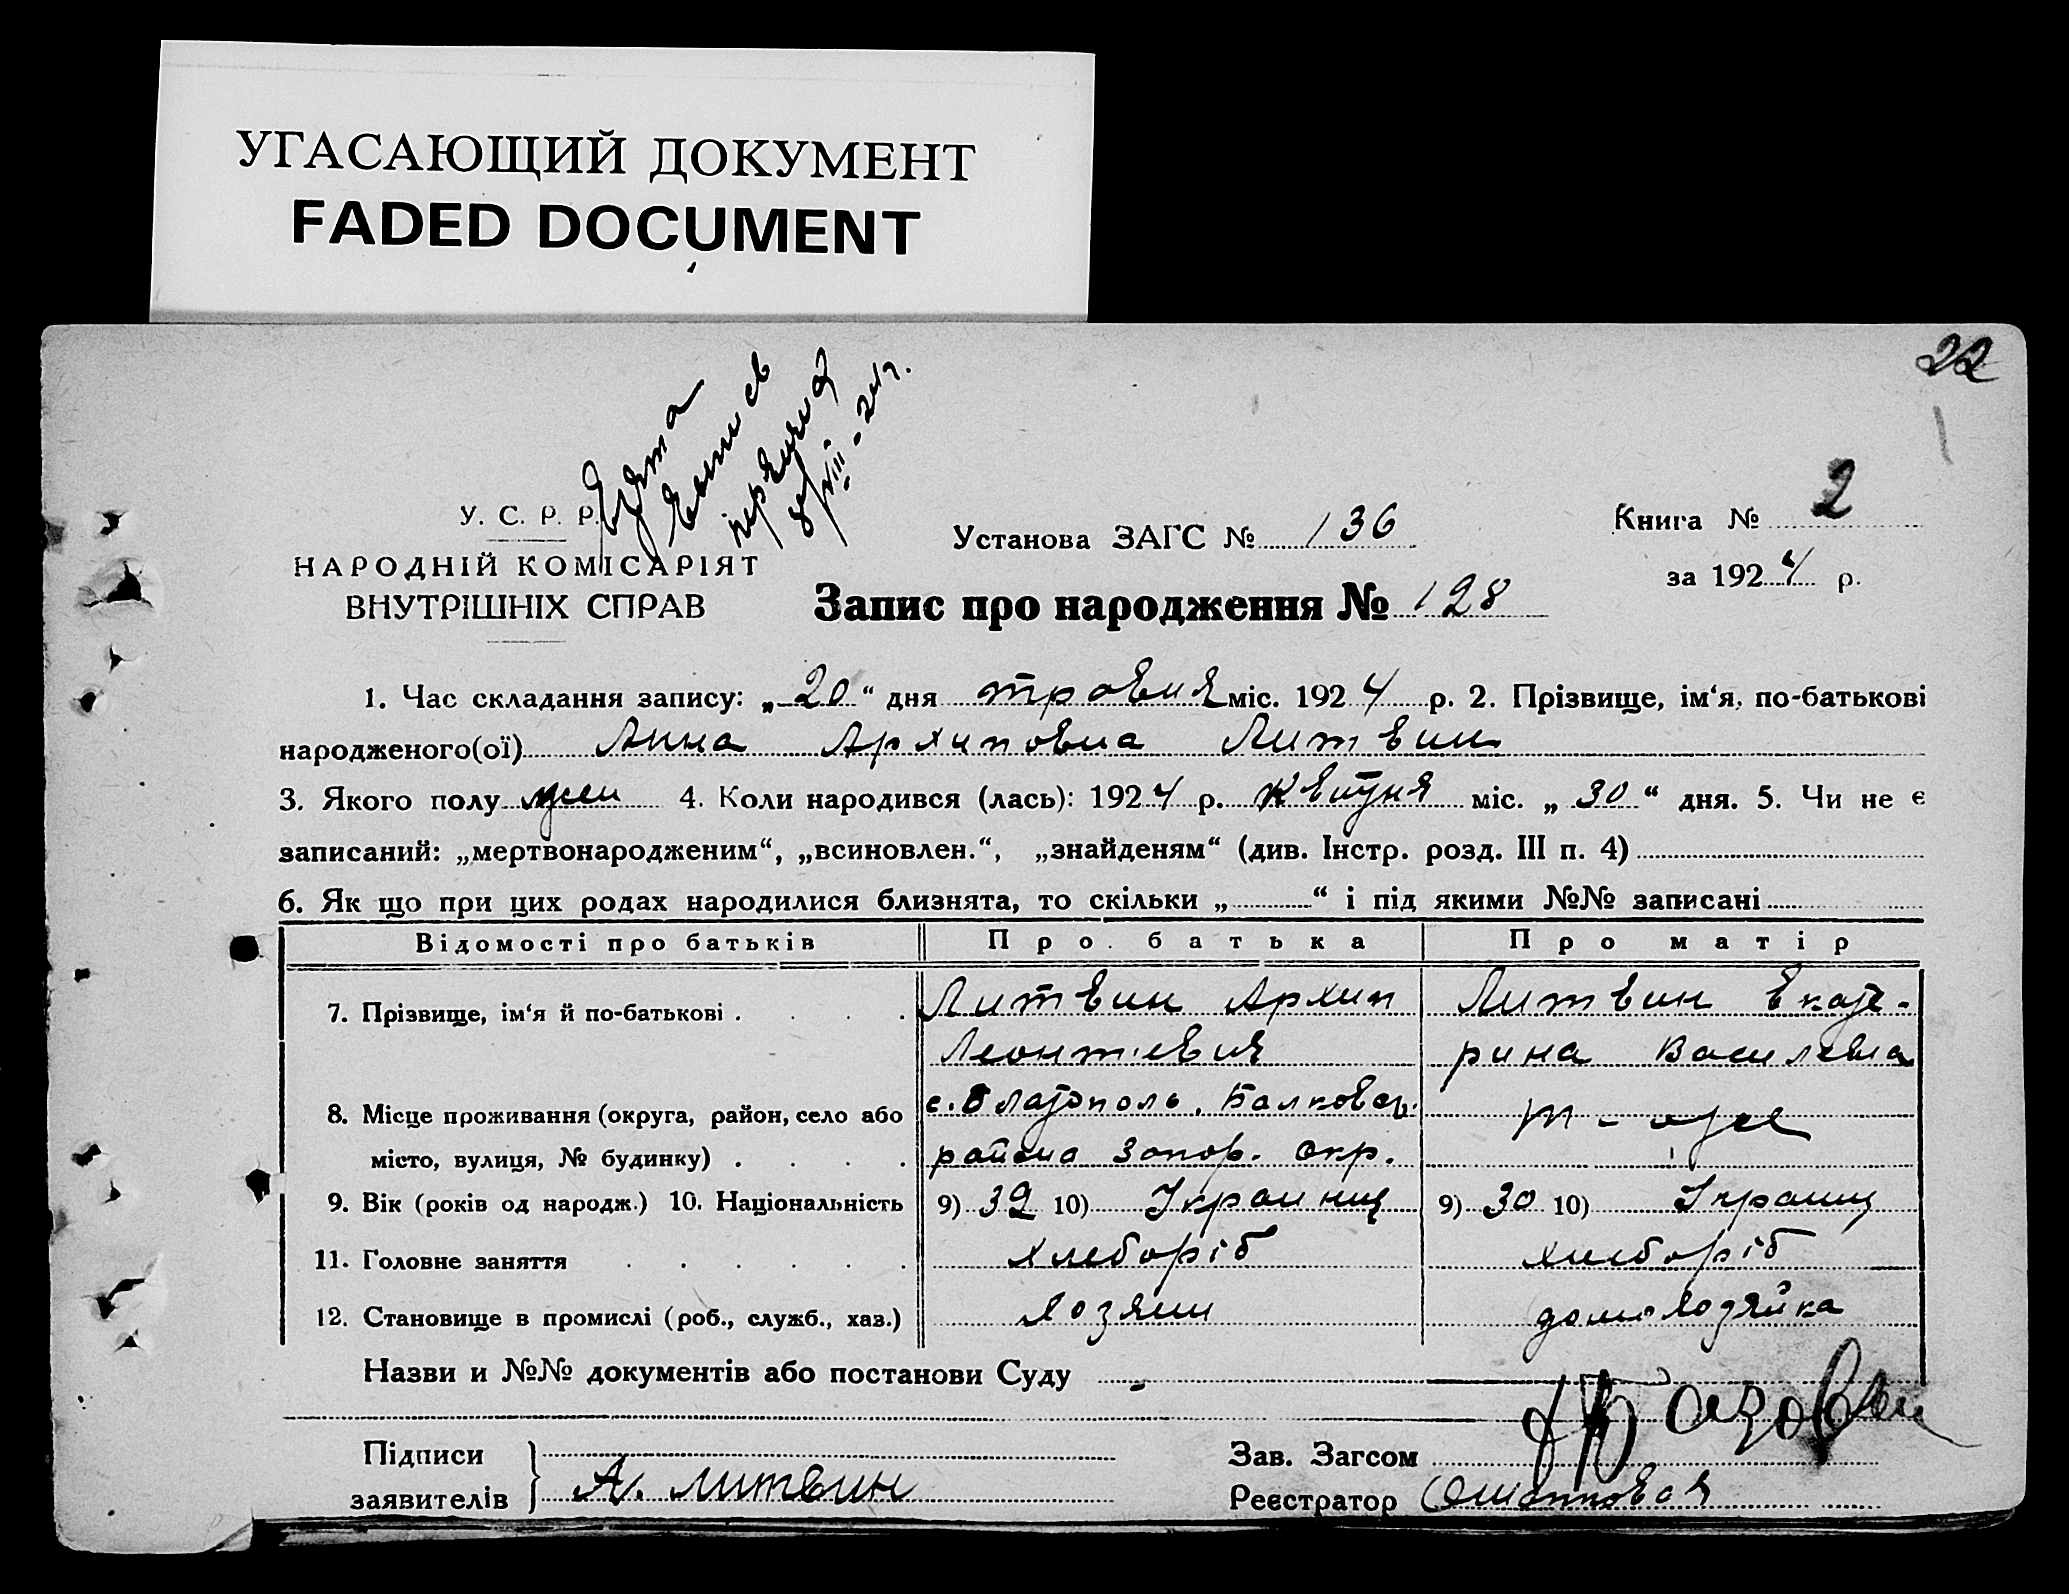 УГАСАЮЩИЙ ДОКУМЕНТ
FADED DOCUMENT
22
У. С. Р. Р.
НАРОДНІЙ КОМІСАРІЯТ
ВНУТРІШНІХ СПРАВ
Установа ЗАГС № 136
Книга № 2
за 1924 р.
Запис про народження № 128
1. Час складання запису: „20“ дня травня міс. 1924 р. 2. Прізвище, ім‘я, по-батькові
народженого(ої) Анна Архиповна Литвин
3. Якого полу жен 4. Коли народився (лась): 1924 р. Квітня міс. „30“ дня. 5. Чи не є
записаний: „мертвонародженим“, „всиновлен.“, „знайденям“ (див. Інстр. розд. III п. 4)
6. Як що при цих родах народилися близнята, то скільки „ “ і під якими №№ записані
Відомості про батьків Про батька Про матір
7. Прізвище, ім‘я й по-батькові Литвин Архип Литвин Екате-
Леонтіевич рина Василевна
8. Місце проживання (округа, район, село або с. Благополь, т-оже
місто, вулиця, № будинку) района Запор. Окр.
9. Вік (років од народж.) 10. Національність 9) 32 10) Україниц 9) 30 10) Україниц
11. Головне заняття хлеборіб хлеборіб
12. Становище в промислі (роб., служб., хаз.) хозяин домохозяйка
Назви и №№ документів або постанови Суду -
Підписи
заявителів А. Литвин
Зав. Загсом
Реєстратор